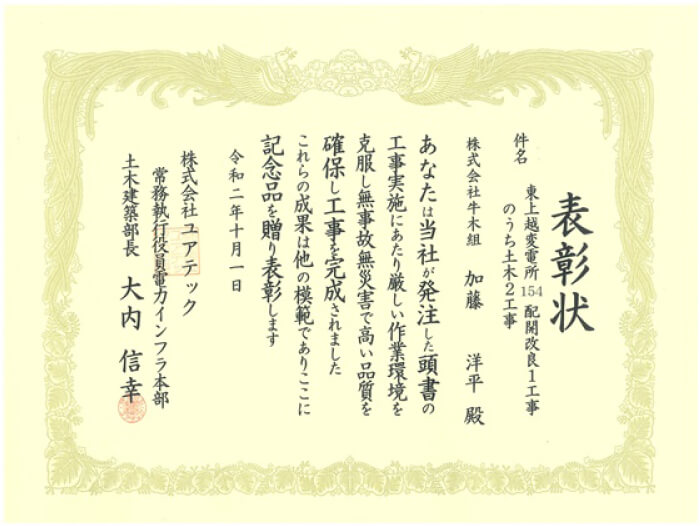 表彰状
件名　東上越変電所154配開改良1工事
のうち土木2工事
株式会社牛木組　加藤　洋平　殿
あなたは当社が発注した頭書の
工事実施にあたり厳しい作業環境を
克服し無事故無災害で高い品質を
確保し工事を完成されました
これらの成果は他の模範でありここに
記念品を贈り表彰します
令和二年十月一日
株式会社ユアテック
常務執行役員電力インフラ本部
土木建築部長　大内　信幸